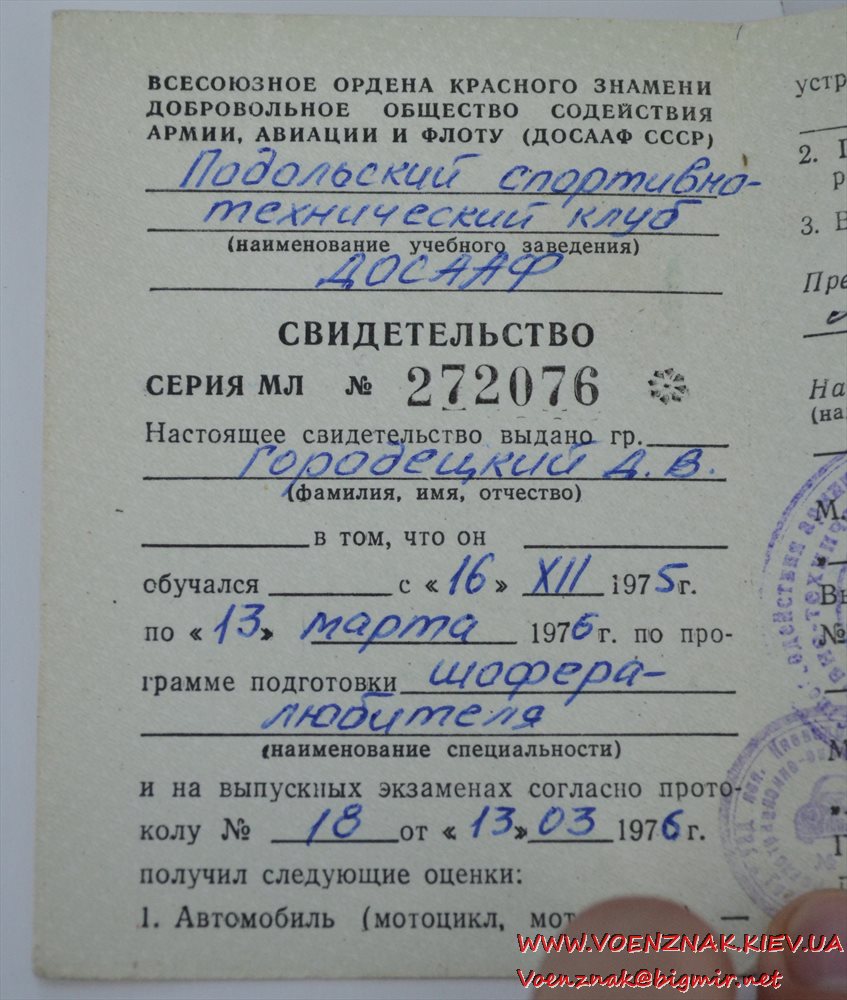 ВСЕСОЮЗНОЕ ОРДЕНА КРАСНОГО ЗНАМЕНИ
ДОБРОВОЛЬНОЕ ОБЩЕСТВО СОДЕЙСТВИЯ
АРМИИ, АВИАЦИИ И ФЛОТУ (ДОСААФ СССР)
Подольский спортивно-
технический клуб
(наименование учебного заведения)
ДОСААФ
СВИДЕТЕЛЬСТВО
СЕРИЯ МЛ № 272076
Настоящее свидетельство выдано гр.
Городецкий Д. В.
(фамилия, имя, отчество)
в том, что он
обучался с «16» XII 1975 г.
по «13» марта 1976 г. по про-
грамме подготовки шофера-
любителя
(наименование специальности)
и на выпускных экзаменах согласно прото-
колу № 18 от «13» 03 1976 г.
получил следующие оценки:
1. Автомобиль (мотоцикл, мот
устр
2.
3.
М.
№
WWW.VOENZNAK.KIEV.UA
Voenznak@bigmir.net